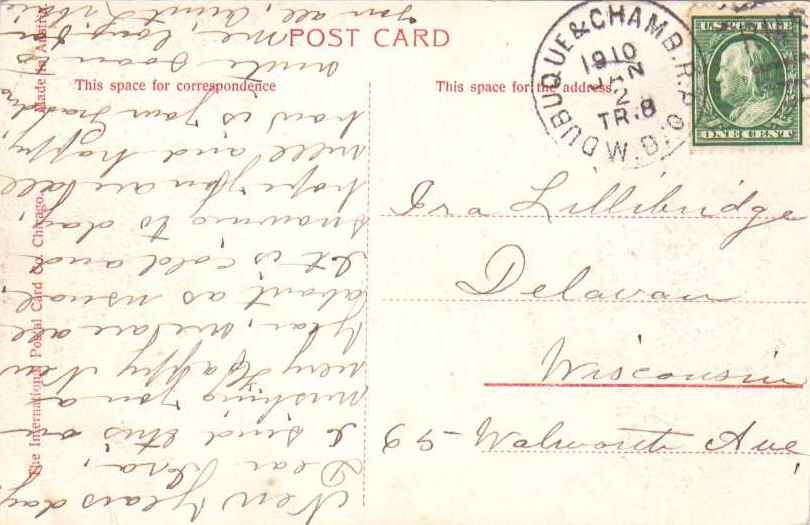 POST CARD
This space for correspondence
This space for the address.
Made in Austria
The International Postal Card Co. Chicago.
DUBUQUE & CHAMB. R.P.O.
1910
JAN
2
TR.8
W.D.
U.S. POSTAGE
ONE CENT
Ira Lillibridge
Delavan
Wisconsin
65- Walworth Ave
New Years day
Dear Ira,
I send this on
wishing you a
very Happy New
Year, we are all
about as usual.
It is cold and
snowing to day,
hope you are all
well and happy
how is your Grandma
write soon to
me, love to
you all, Aunt